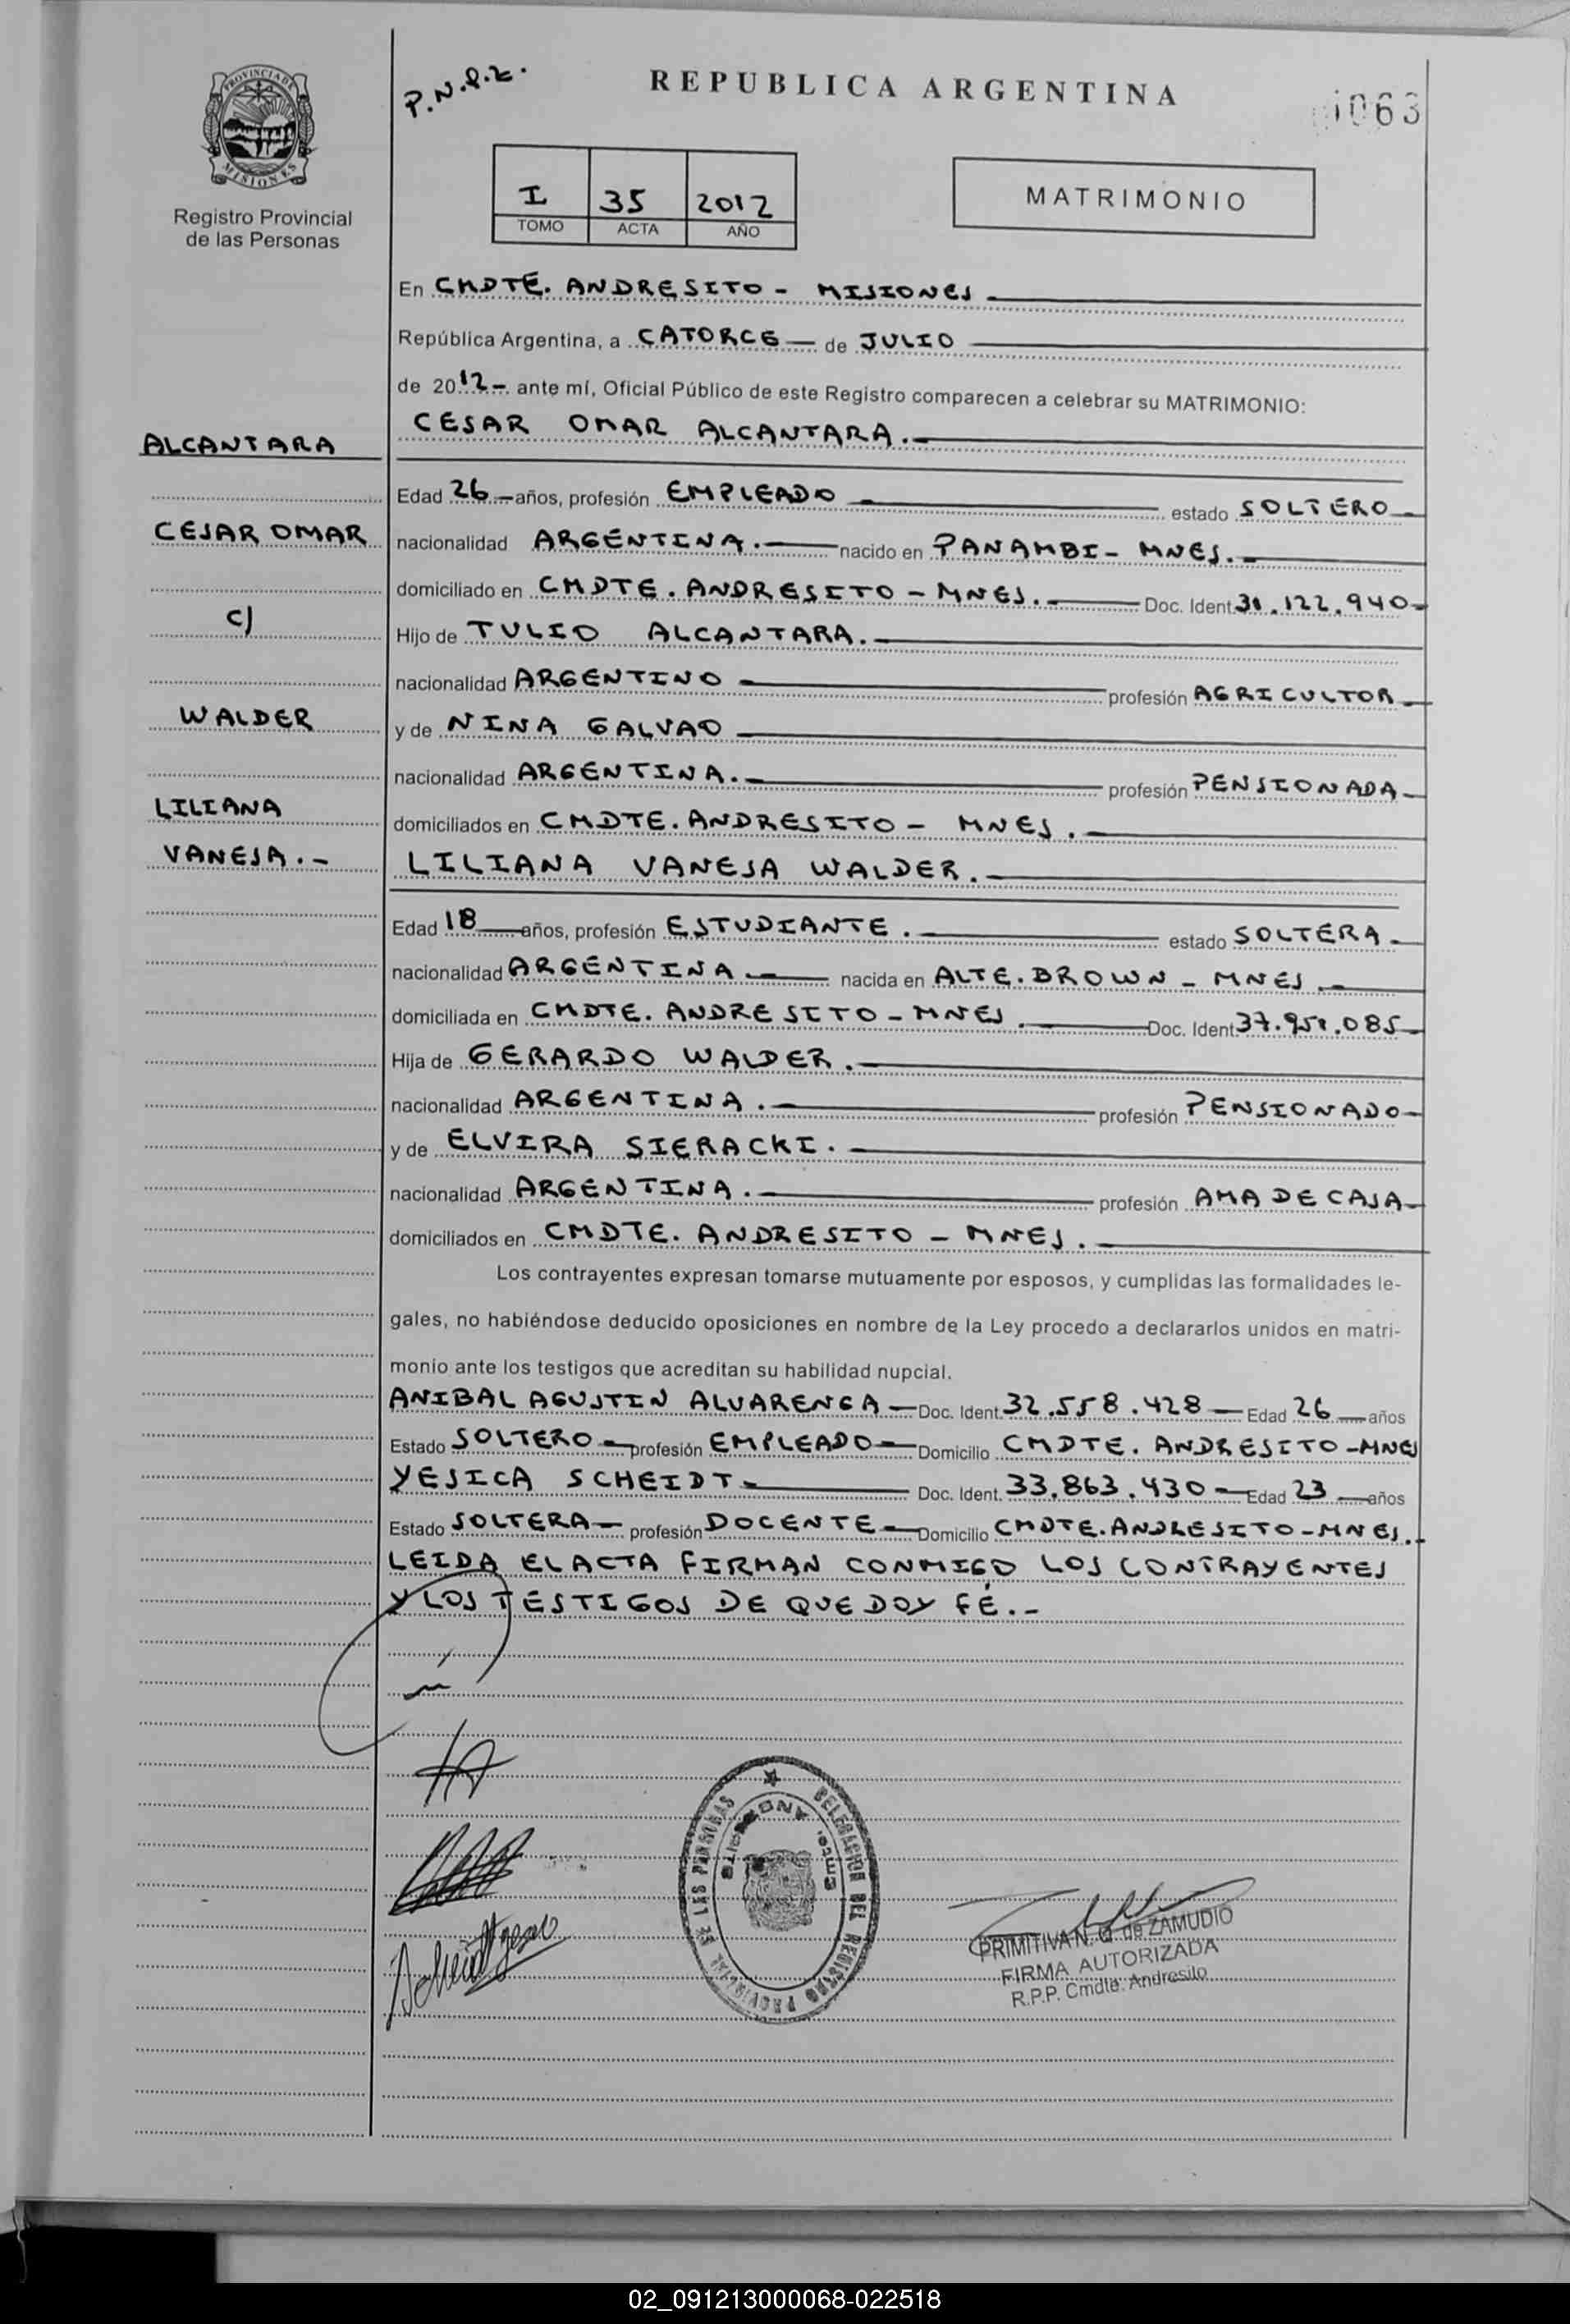 PROVINCIA DE
MISIONES
Registro Provincial
de las Personas
P.N.
REPUBLICA ARGENTINA
1063
I 35 2012
TOMO ACTA AÑO
MATRIMONIO
En CMDTE. ANDRESITO - MISIONES
República Argentina, a CATORCE de JULIO
de 2012- ante mí, Oficial Público de este Registro comparecen a celebrar su MATRIMONIO:
CESAR OMAR ALCANTARA.-
ALCANTARA
Edad 26 años, profesión EMPLEADO estado SOLTERO
CESAR OMAR
nacionalidad ARGENTINA. nacido en PANAMBI- MNES.
domiciliado en CMDTE. ANDRESITO - MNES. Doc. Ident. 31.122.940-
C/
Hijo de TULIO ALCANTARA.
nacionalidad ARGENTINO profesión AGRICULTOR
WALDER
y de NINA GALVAO
nacionalidad ARGENTINA. profesión PENSIONADA
LILIANA
domiciliados en CMDTE. ANDRESITO - MNES.
VANESA.-
LILIANA VANESA WALDER.
Edad 18 años, profesión ESTUDIANTE. estado SOLTERA
nacionalidad ARGENTINA nacida en ALTE. BROWN - MNES.
domiciliada en CMDTE. ANDRESITO - MNES. Doc. Ident. 37.951.085
Hija de GERARDO WALDER.
nacionalidad ARGENTINA. profesión PENSIONADO
y de ELVIRA SIERACKI.
nacionalidad ARGENTINA. profesión AMA DE CASA
domiciliados en CMDTE. ANDRESITO - MNES.
Los contrayentes expresan tomarse mutuamente por esposos, y cumplidas las formalidades le-
gales, no habiéndose deducido oposiciones en nombre de la Ley procedo a declararlos unidos en matri-
monio ante los testigos que acreditan su habilidad nupcial.
ANIBAL AGUSTIN ALVARENGA Doc. Ident. 32.558.428 Edad 26 años
Estado SOLTERO profesión EMPLEADO Domicilio CMDTE. ANDRESITO-MNES
YESICA SCHEIDT Doc. Ident. 33.863.430 Edad 23 años
Estado SOLTERA profesión DOCENTE Domicilio CMDTE. ANDRESITO-MNES.
LEIDA EL ACTA FIRMAN CONMIGO LOS CONTRAYENTES
Y LOS TESTIGOS DE QUE DOY FÉ.-
DELEGACION DEL REGISTRO PROVINCIAL DE LAS PERSONAS
Cmte. ANDRESITO
PRIMITIVA N. G. de ZAMUDIO
FIRMA AUTORIZADA
R.P.P. Cmdte. Andresito
02_091213000068-022518